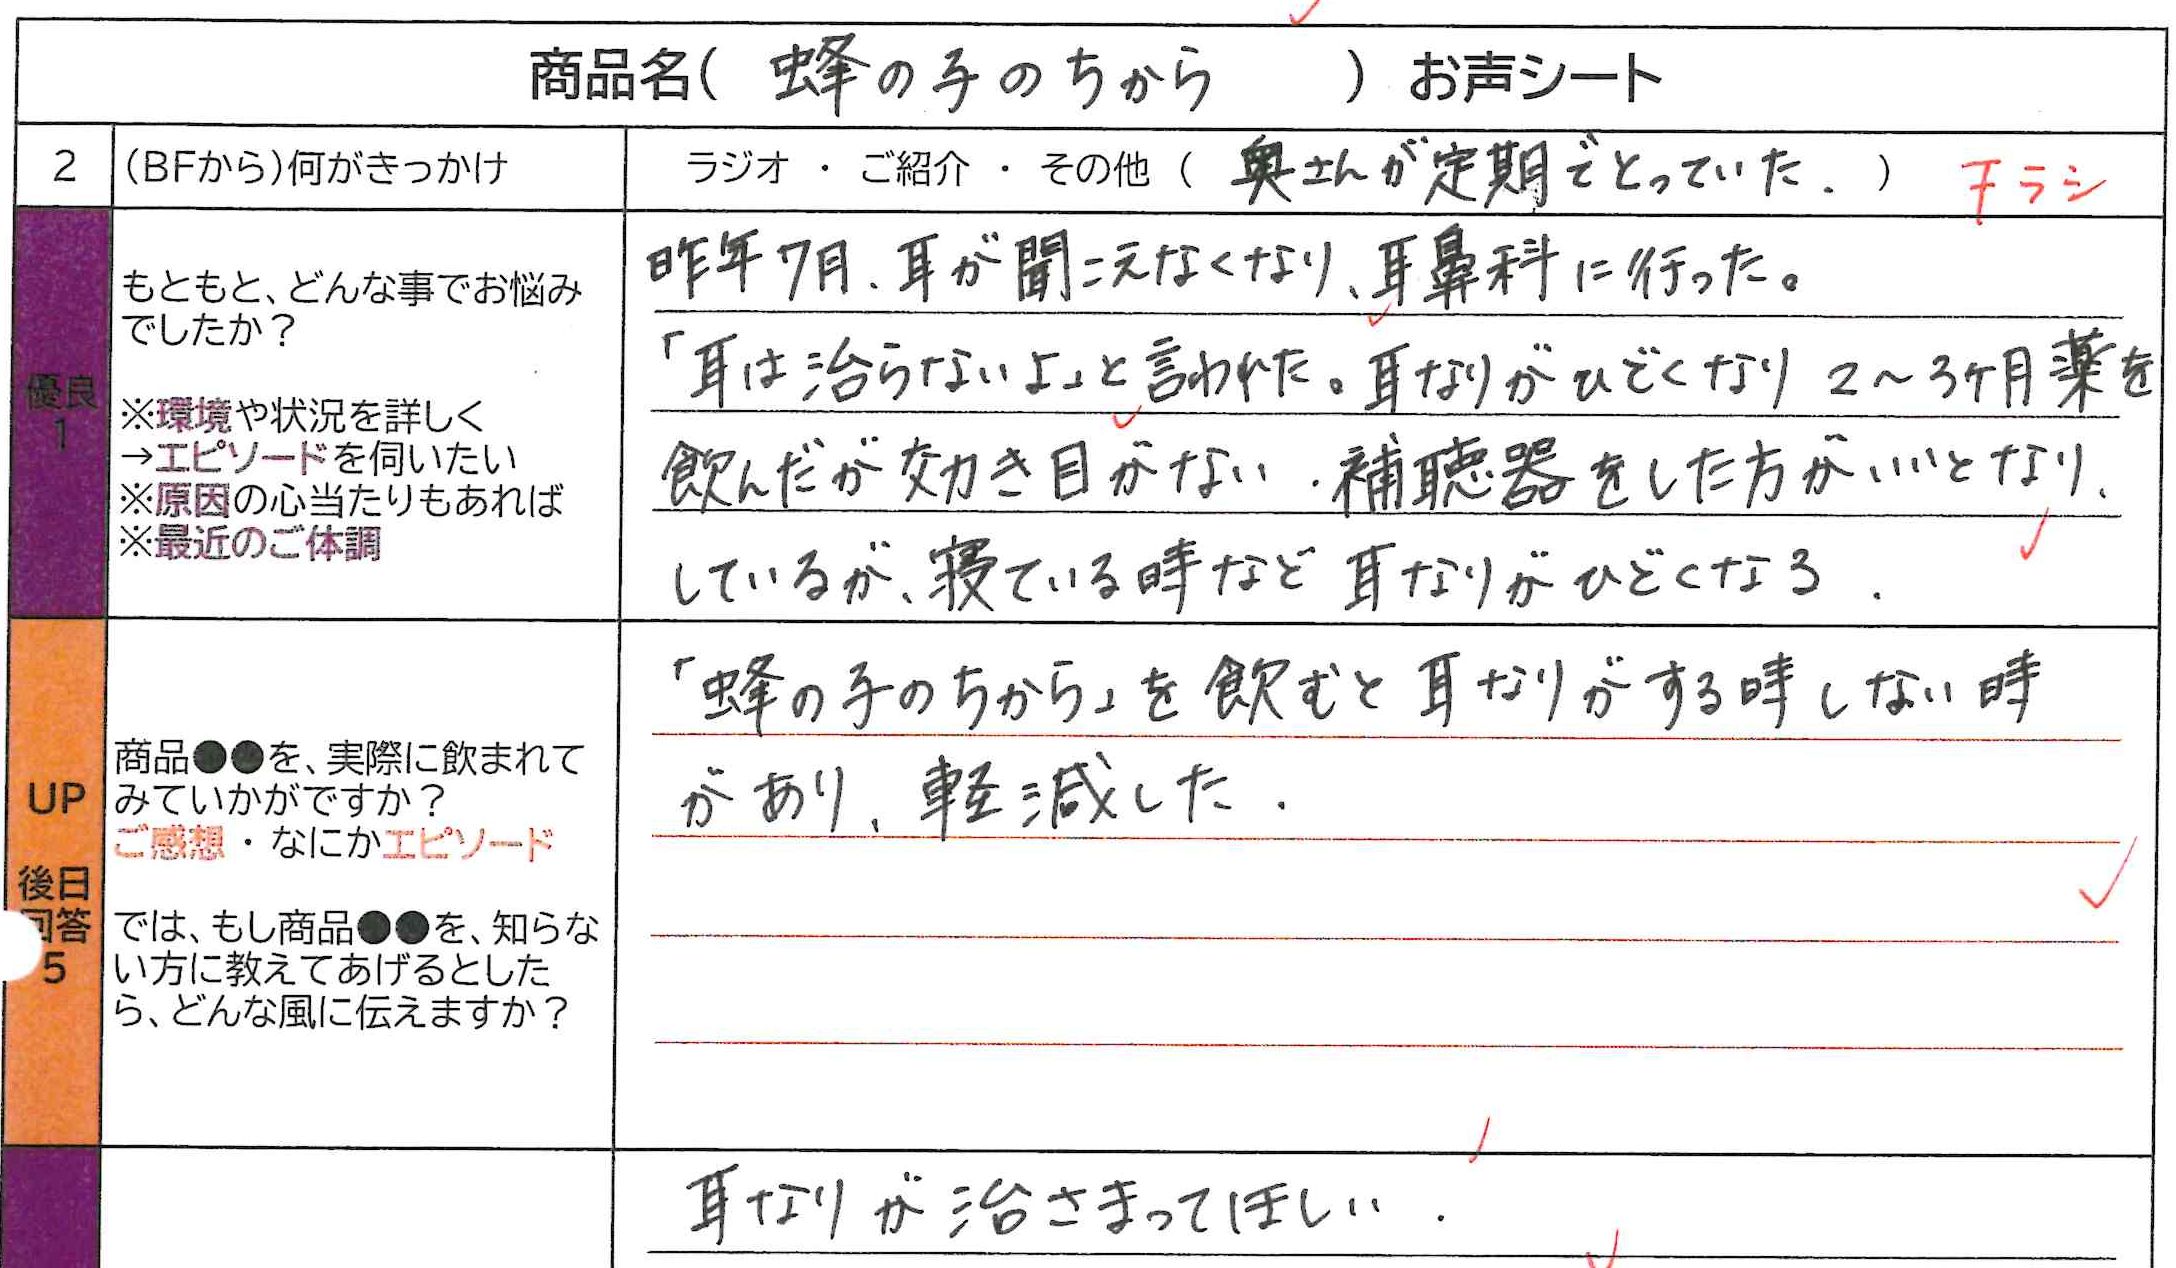 商品名( 蜂の子のちから ) お声シート
2 (BFから)何がきっかけ ラジオ ・ ご紹介 ・ その他 ( 奥さんが定期でとっていた. ) チラシ
優良
1
もともと、どんな事でお悩み
でしたか？
※環境や状況を詳しく
→エピソードを伺いたい
※原因の心当たりもあれば
※最近のご体調
昨年7月、耳が聞こえなくなり、耳鼻科に行った。
「耳は治らないよ」と言われた。耳なりがひどくなり 2〜3ヶ月薬を
飲んだが効き目がない.補聴器をした方がいいとなり、
しているが、寝ている時など耳なりがひどくなる.
UP
後日
回答
5
商品●●を、実際に飲まれて
みていかがですか？
ご感想・なにかエピソード
では、もし商品●●を、知らな
い方に教えてあげるとした
ら、どんな風に伝えますか？
「蜂の子のちから」を飲むと耳なりがする時しない時
があり、軽減した.
耳なりが治さまってほしい.